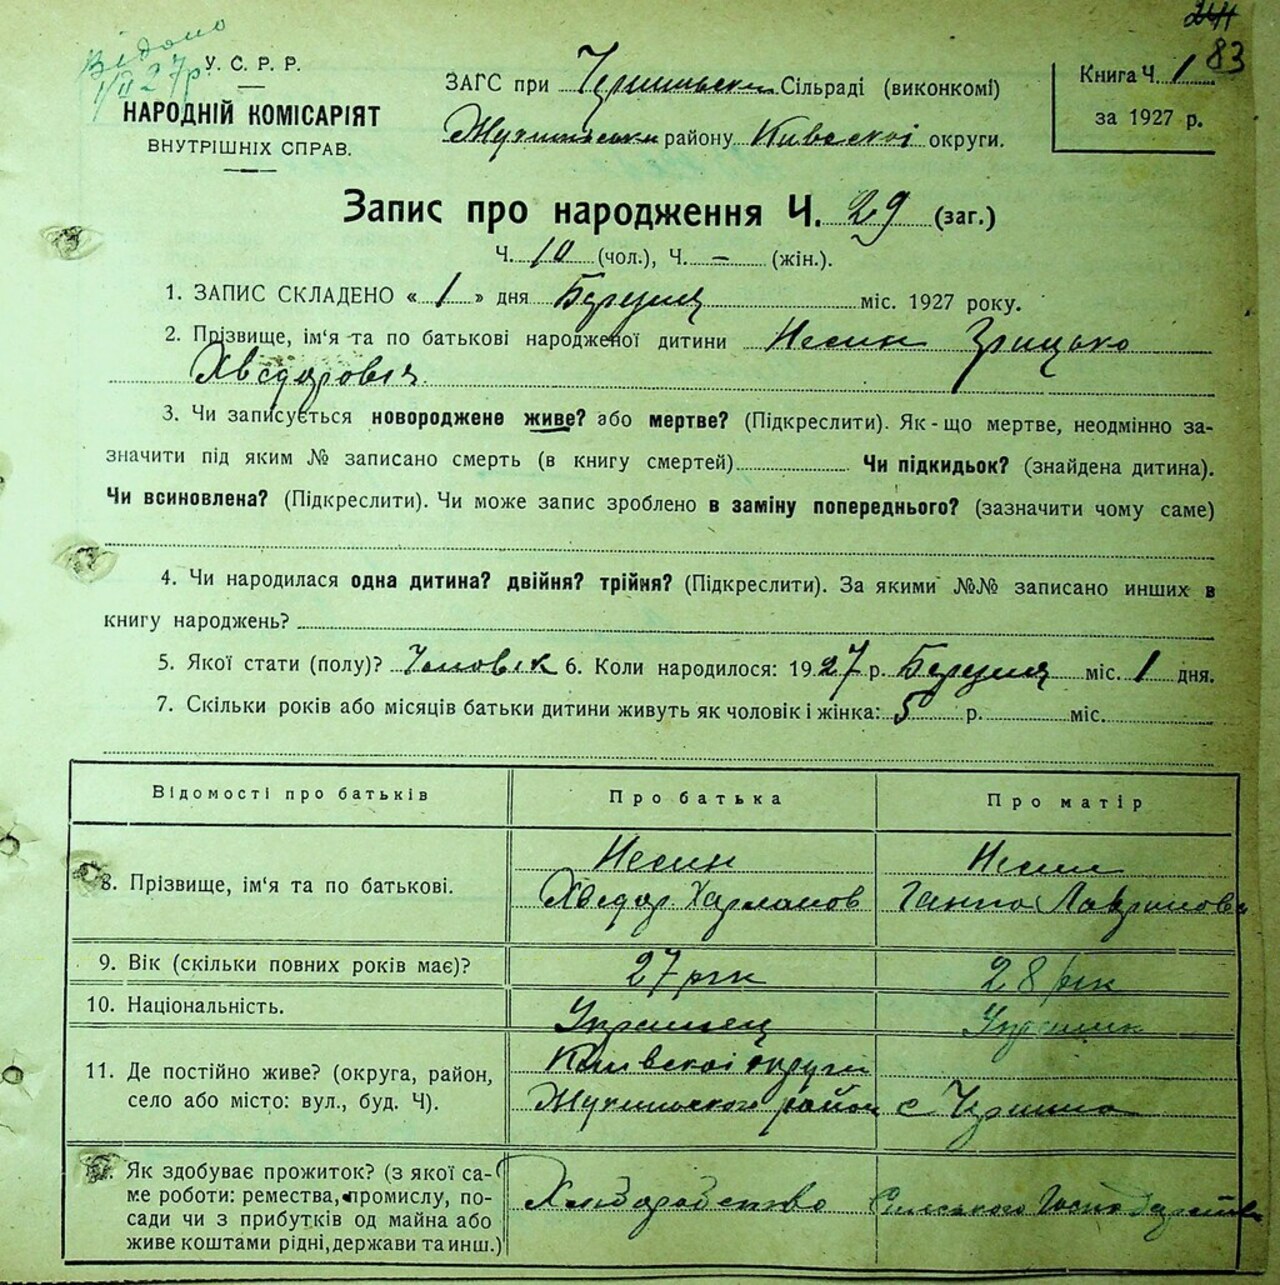 244
83
Відомо
1/II 27 р
У. С. Р. Р.
НАРОДНІЙ КОМІСАРІЯТ
ВНУТРІШНІХ СПРАВ.
ЗАГС при Сільраді (виконкомі)
району Київскої округи.
Книга Ч. 1
за 1927 р.
Запис про народження Ч. 29 (заг.)
Ч. 10 (чол.), Ч. – (жін.).
1. ЗАПИС СКЛАДЕНО « 1 » дня Березня міс. 1927 року.
2. Прізвище, ім‘я та по батькові народженої дитини Несин Грицько
Хведорович
3. Чи записується новороджене живе? або мертве? (Підкреслити). Як-що мертве, неодмінно за-
значити під яким № записано смерть (в книгу смертей) Чи підкидьок? (знайдена дитина).
Чи всиновлена? (Підкреслити). Чи може запис зроблено в заміну попереднього? (зазначити чому саме)
4. Чи народилася одна дитина? двійня? трійня? (Підкреслити). За якими №№ записано инших в
книгу народжень?
5. Якої стати (полу)? Чоловік 6. Коли народилося: 1927 р. Березня міс. 1 дня.
7. Скільки років або місяців батьки дитини живуть як чоловік і жінка: 5 р. міс.
Відомості про батьків Про батька Про матір
Несин Несин
8. Прізвище, ім‘я та по батькові. Хведор Харланов Ганна Лавринова
9. Вік (скільки повних років має)? 27 рік 28 рік
10. Національність. Украинец Украинк
Київскої округи
11. Де постійно живе? (округа, район,
село або місто: вул., буд. Ч). район с
Як здобуває прожиток? (з якої са-
ме роботи: ремества, промислу, по-
сади чи з прибутків од майна або
живе коштами рідні, держави та инш.)
Хліборобство Сильського Господарства